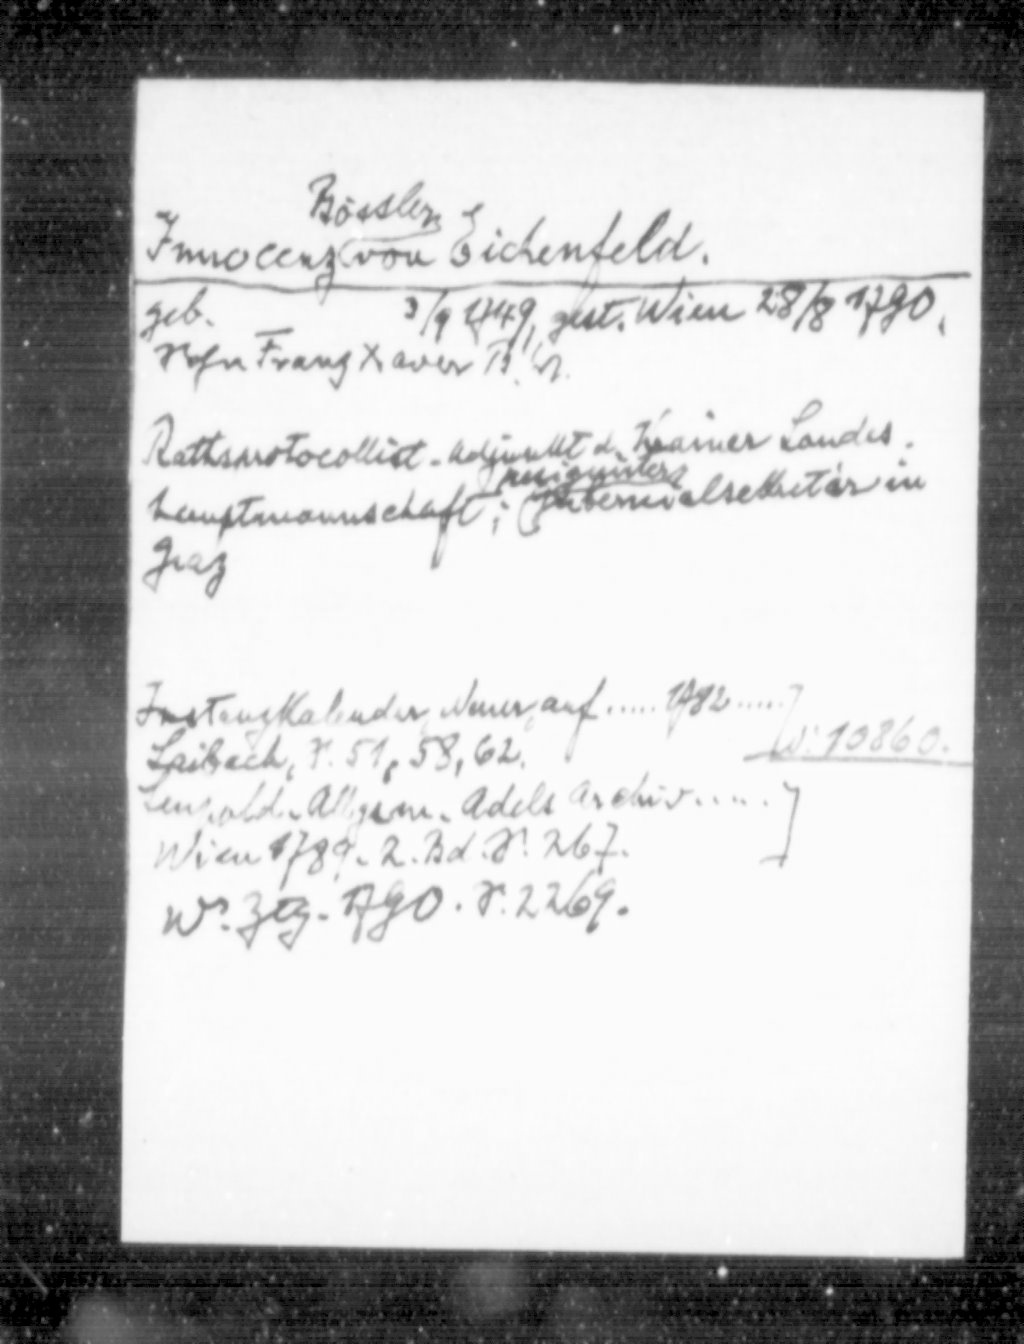 Bössler
Innocenz von Eichenfeld.
geb. 3/9 1749, gest. Wien 28/8 1790.
Franz Xaver B.
Rathsprotocollist-Adjunkt d. Krainer Landes-
resignirter
hauptmannschaft; Gubernialsekretär in
Graz
Instanz Kalender, Neuer, auf ..... 1782 .....
Laibach, S. 51, 58, 62. W: 10860.
Leupold. Allgem. Adels Archiv .....
Wien 1789. 2. Bd. S. 267.
Wr. Ztg. 1790. S. 2269.